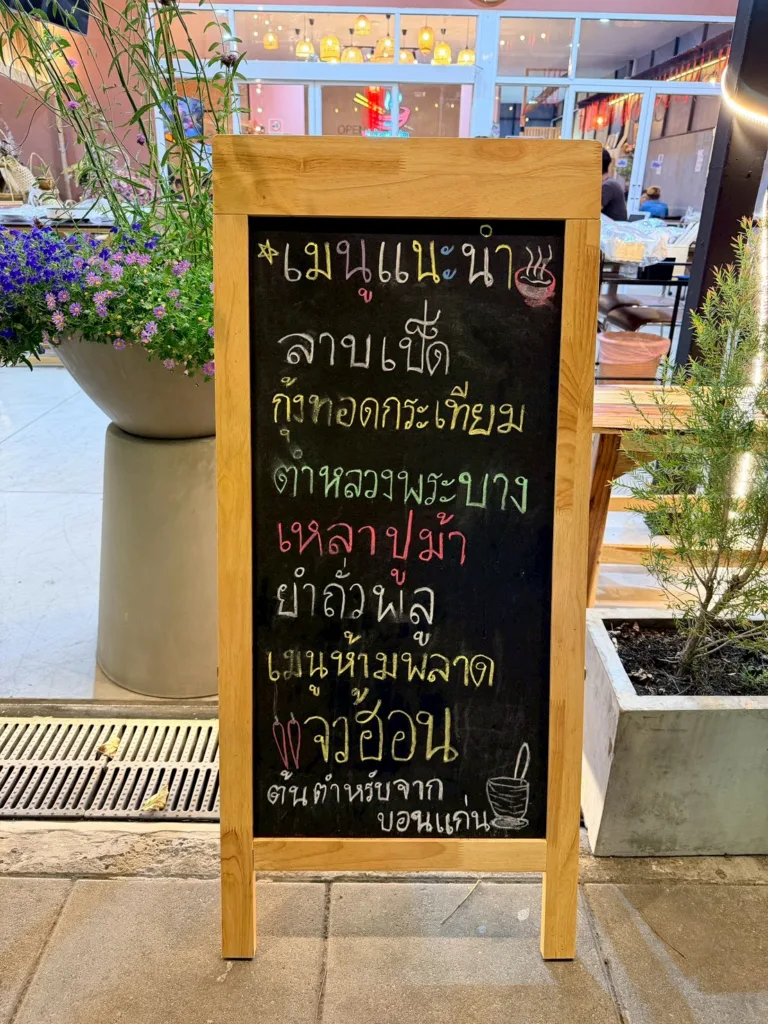 เมนูแนะนำ
ลาบเป็ด
กุ้งทอดกระเทียม
ตำหลวงพระบาง
เหลาปูม้า
ยำถั่วพลู
เมนูห้ามพลาด
จวฮ้อน
ต้นตำหรับจาก
ขอนแก่น
OPEN